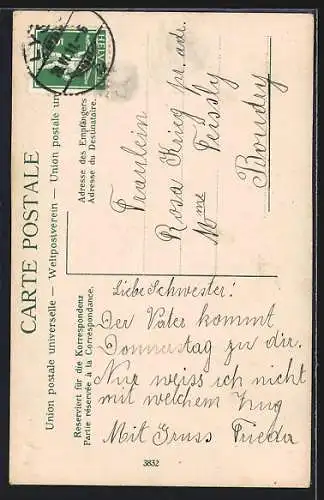 HELV
CARTE POSTALE
Union postale universelle — Weltpostverein — Union postale un
Adresse des Empfängers
Adresse du Destinataire.
Fräulein
Rosa Krieg pr. adr.
Mme
Boudry
Reserviert für die Korrespondenz
Partie réservée à la Correspondance.
Liebe Schwester!
Der Vater kommt
Donnerstag zu dir.
Nur weiss ich nicht
mit welchem Zug
Mit Gruss Frieda
3832